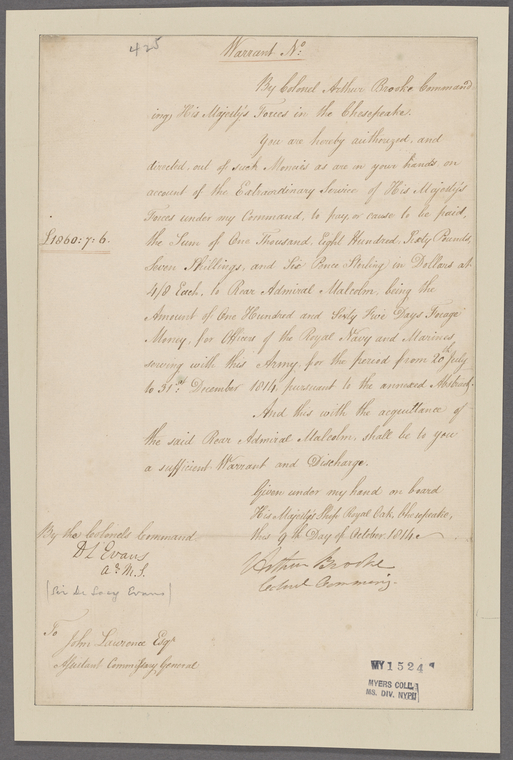 425
Warrant No.
By Colonel Arthur Brooke Command
ing His Majesty's Forces in the Chesapeake.
You are hereby authorized, and
directed, out of such Monies as are in your hands, on
account of the Extraordinary Service of His Majesty's
Forces under my Command, to pay, or cause to be paid,
£1860:7:6.
the Sum of One Thousand, Eight Hundred, Sixty Pounds,
Seven Shillings, and Six Pence Sterling in Dollars at
4/8 Each, to Rear Admiral Malcolm, being the
Amount of One Hundred and Sixty Five Days Forage
Money, for Officers of the Royal Navy and Marines,
serving with this Army, for the period from 20th July
to 31st December 1814 pursuant to the annexed Abstract.
And this with the acquittance of
the said Rear Admiral Malcolm, shall be to you
a sufficient Warrant and Discharge.
Given under my hand on board
His Majesty's Ship Royal Oak, Chesapeake,
this 9th Day of October 1814
By the Colonels Command
D L Evans
(Sir De Lacy Evans)
Arthur Brooke
Colonel Commanding.
To
John Lawrence Esqr
Assistant Commissary General
MY 1524
MYERS COLL.
MS. DIV. NYPL